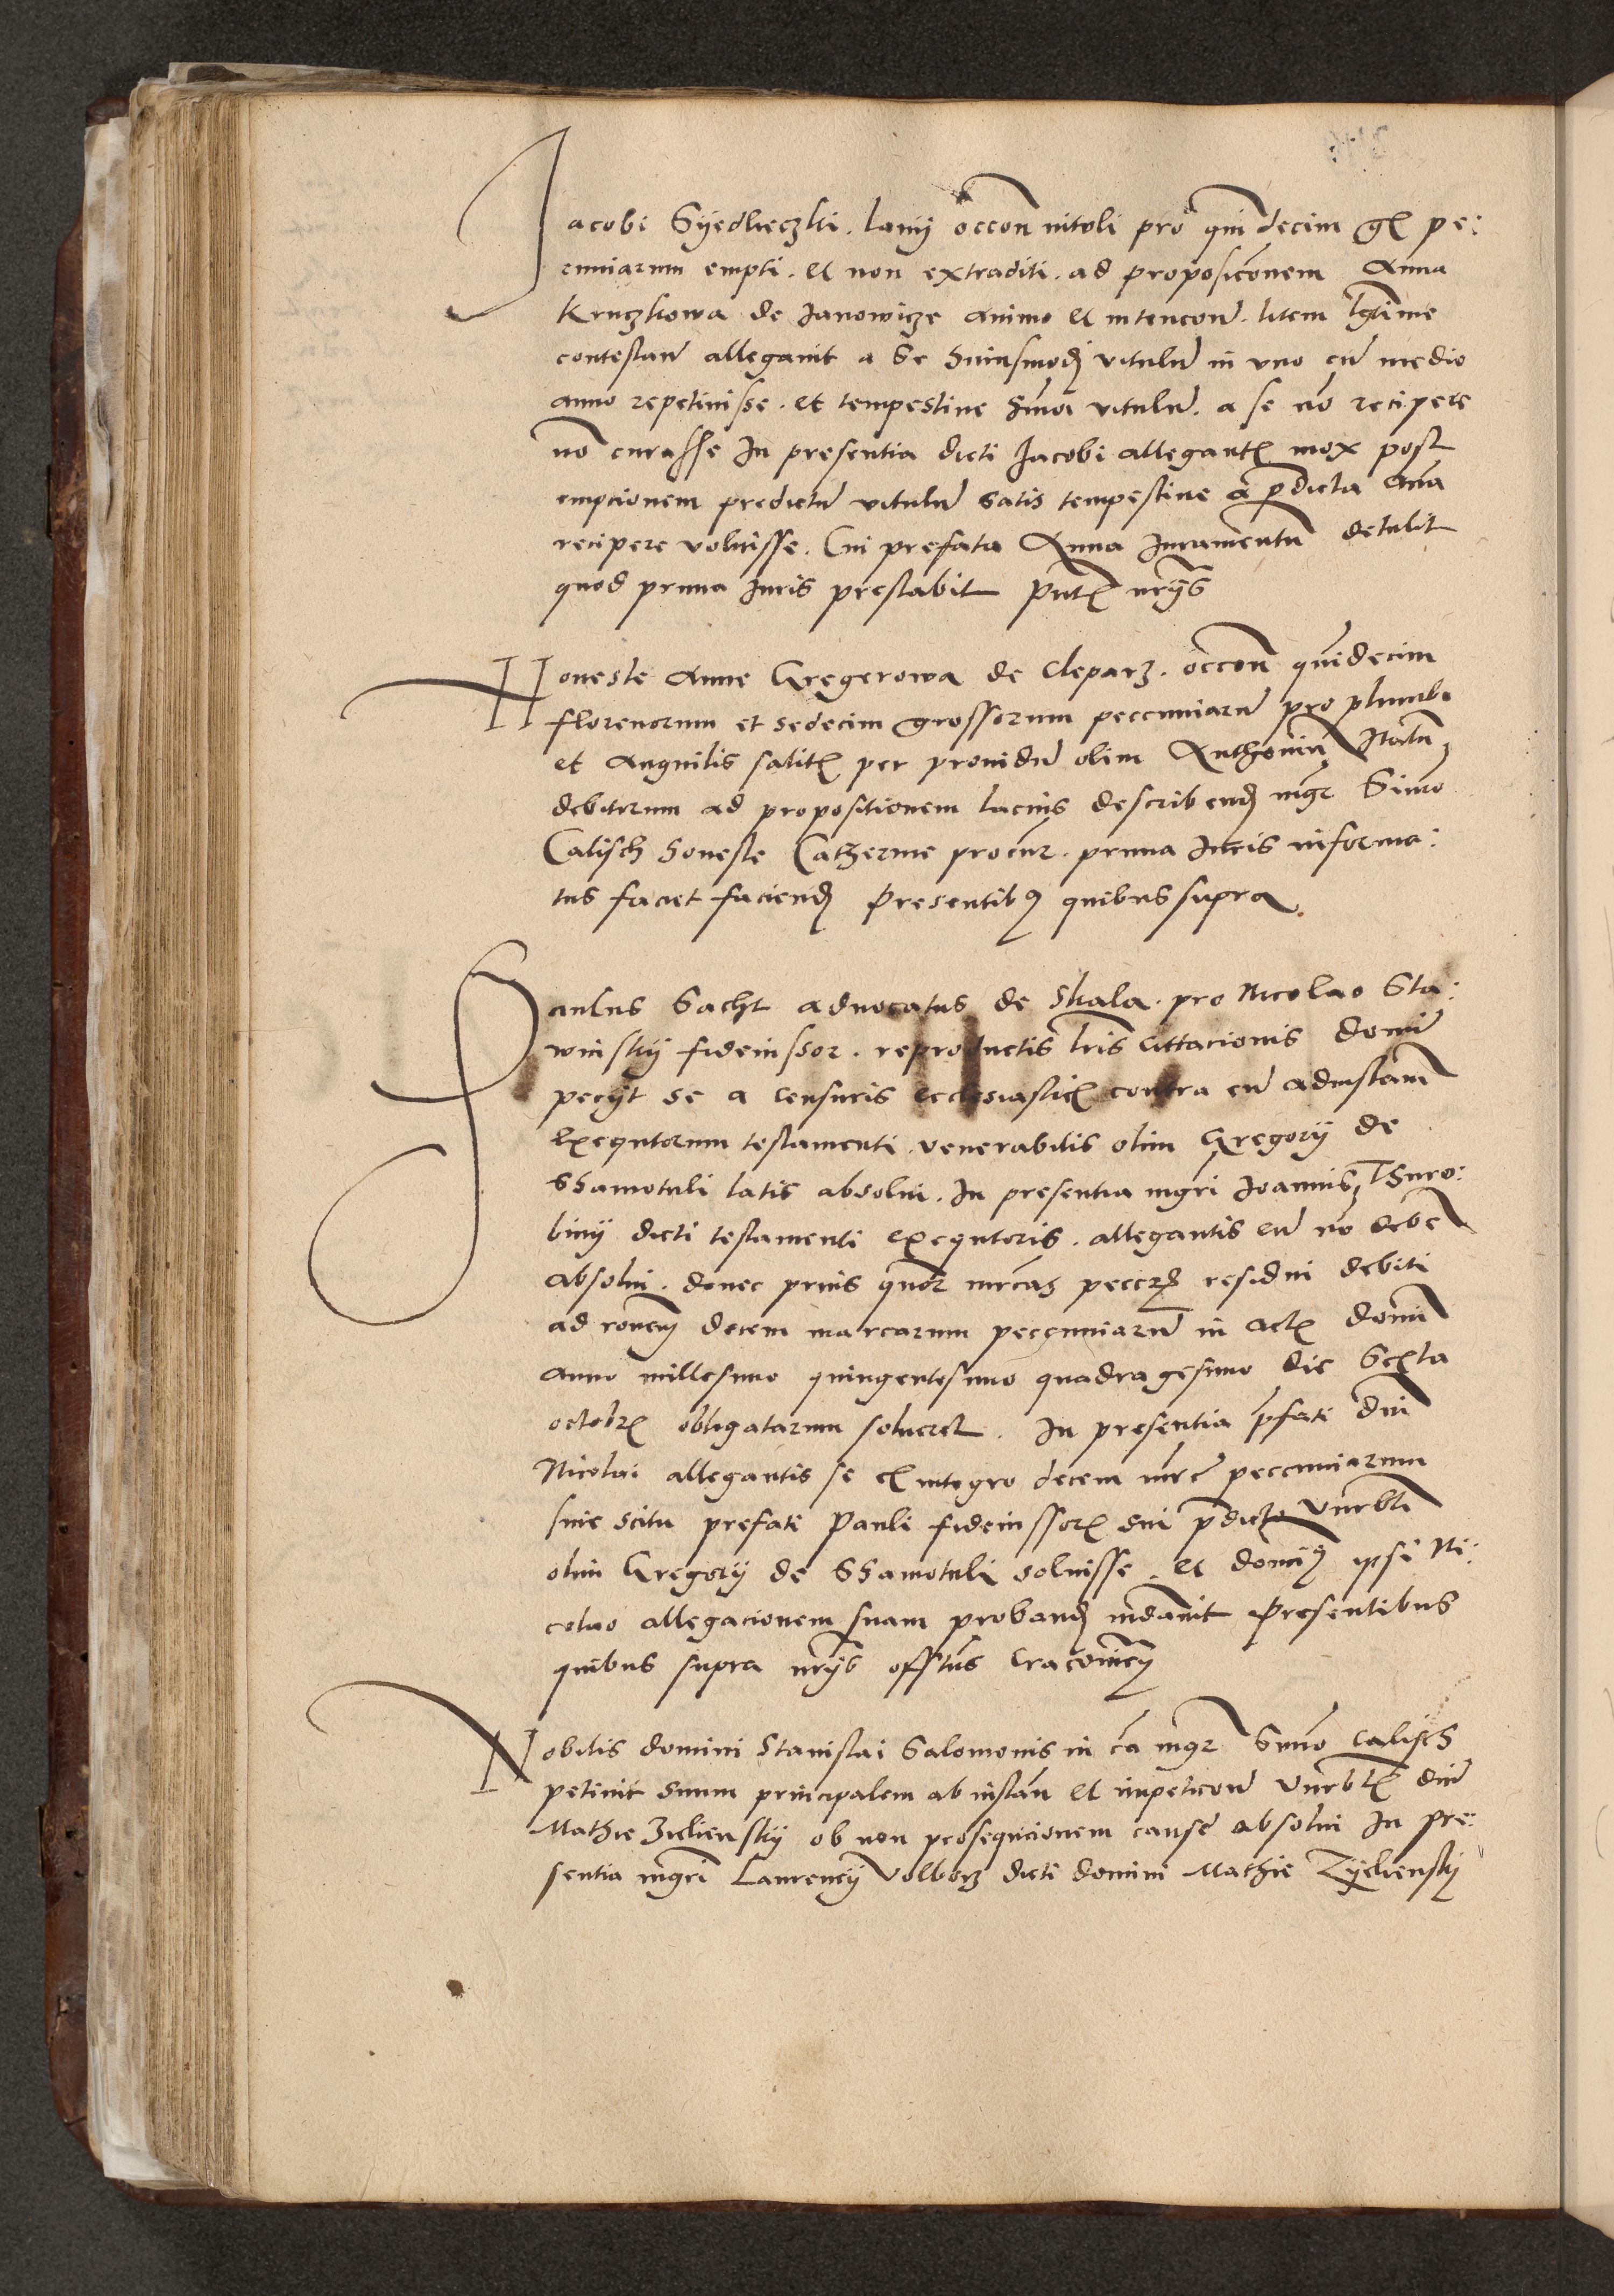 Jacobi Syedlieczki . lanij occon vituli pro quindecim gr pe:
cuniarum empti . et non extraditi . ad proposiconem Anna
Kruczkowa de Janowicze animo et intencone . litem lgtime
contestan allegavit a se huiusmodj vitulu in uno cu medio
anno repetivisse . et tempestive hmoi vitulu . a se no recipere
no curasse In presentia dicti Jacobi allegant mox post
empcionem predictu vitulu satis tempestive a pdicta Anna
recipere voluisse . Cui prefata Anna Juramentu detulit
quod prima Juris prestabit Pntz nrijs
Honeste Anne Gregerowa de Cleparz . occon quindecim
florenorum et sedecim grossorum peccuniaru pro plumbo
et anguilis salitz per providu olim Anthoniu
debitorum ad propositionem lacius describend mgr Simo
Calisch honeste Catherine procur . prima Juris informa:
tus faciet faciend Presentibus quibus supra
Paulus Sacht advocatus de Skala . pro Nicolao Sta:
winsky fideiussor . reproductis lris cittacionis Domi
pecijt se a censuris ecclesiasticz contra eu ad instam
Exequtorum testamenti . venerabilis olim Gregorij de
Shamotuli latis absolvi . In presentia mgri Joannis Thuro:
binij dicti testamenti exequtoris . allegantis eu no debe
absolvi . donec prius quor mrcas pecc residui debiti
ad roncm decem marcarum peccuniaru in actz Domi
anno millesimo quingentesimo quadragesimo die Sexta
octobrz obligatarum solveret . In presentia pfati dni
Nicolai allegantis se ex integro decem mrc peccuniarum
sine scitu prefati Pauli fideiussorz sui pdicto Vnrbli
olim Gregorij de Shamotuli solvisse . et Domi ipsi Ni:
colao allegacionem suam proband mdavit Presentibus
quibus supra nrijs offtus Cracovien
Nobilis domini Stanislai Salomonis in ca mgr Simo Calisch
petivit suum principalem ab instan et impeticone Vnrblz dni
Mathie Zieliensky ob non prosequcionem cause absolvi In pre:
sentia mgri Laurencij Volborz dicti domini Mathie Zijeliensky